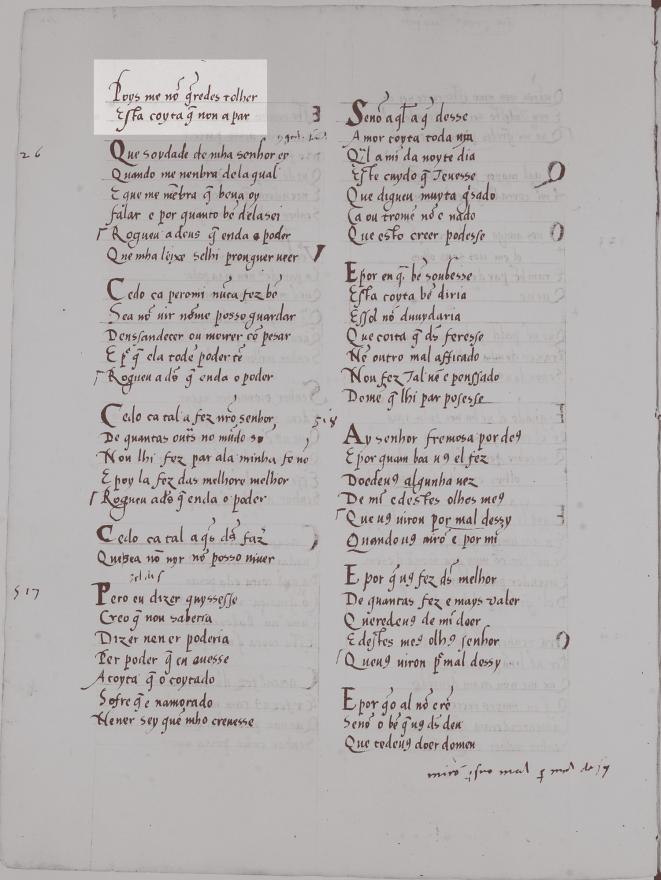 Poys me nō q̄redes tolher
Esta coyta q̄ non a par
26
Que soydade de mha senhor ey
Quando me nenbra dela qual
E que me nēbra q̄ bena oy
falar e por quanto bē dela sei
Rogueu a deus q̄ end a o poder
Que mha leixe selhi prouguer ueer
Cedo ca pero mi nūca fez bē
Sea nō uir nōme posso guardar
Denssandecer ou morrer cō pesar
E p̄q̄ ela tod e poder tē
Rogueu a ds̄ q̄ end a o poder
Cedo ca tal a fez nr̄o senhor
De quantas out̄s no mūdo so
Non lhi fez par ala minha fe nō
E poy la fez das melhore melhor
Rogueu ads̄ q̄ end a o poder
Cedo ca tal a q̄s ds̄ faz
Que sea nō uyr nō posso uiuer
517
Pero eu dizer quysesse
Creo q̄ non saberia
Dizer nen er poderia
Per poder q̄ en ouesse
A coyta q̄ o coytado
Sofre q̄ e namorado
Nener sey quē mho creuesse
Senō aq̄l a q̄ desse
Amor coyta toda uya
Q̄l a mi da noyte dia
Este cuydo q̄ teuesse
Que digueu muyta q̄sado
Ca outrome nō e nado
Que esto creer podesse
E por en q̄ bē soubesse
Esta coyta bē diria
E ssol nō duuydaria
Que coita q̄ ds̄ fezesse
Nē outro mal afficado
Non fez tal nē e penssado
Dome q̄ lhi par posesse
518
Ay senhor fremosa por de9
E por quam boa u9 el fez
Doedeu9 algunha uez
De mī e destes olhos me9
Que u9 uiron por mal dessy
Quando u9 uirō e por mī
E por q̄ u9 fez ds̄ melhor
De quantas fez e mays ualer
Queredeu9 de mī doer
E destes me9 olh9 senhor
Que u9 uiron p̄ mal dessy
E por q̄o al nō e rē
Senō o bē q̄ u9 ds̄ deu
Que redeu9 doer domeu